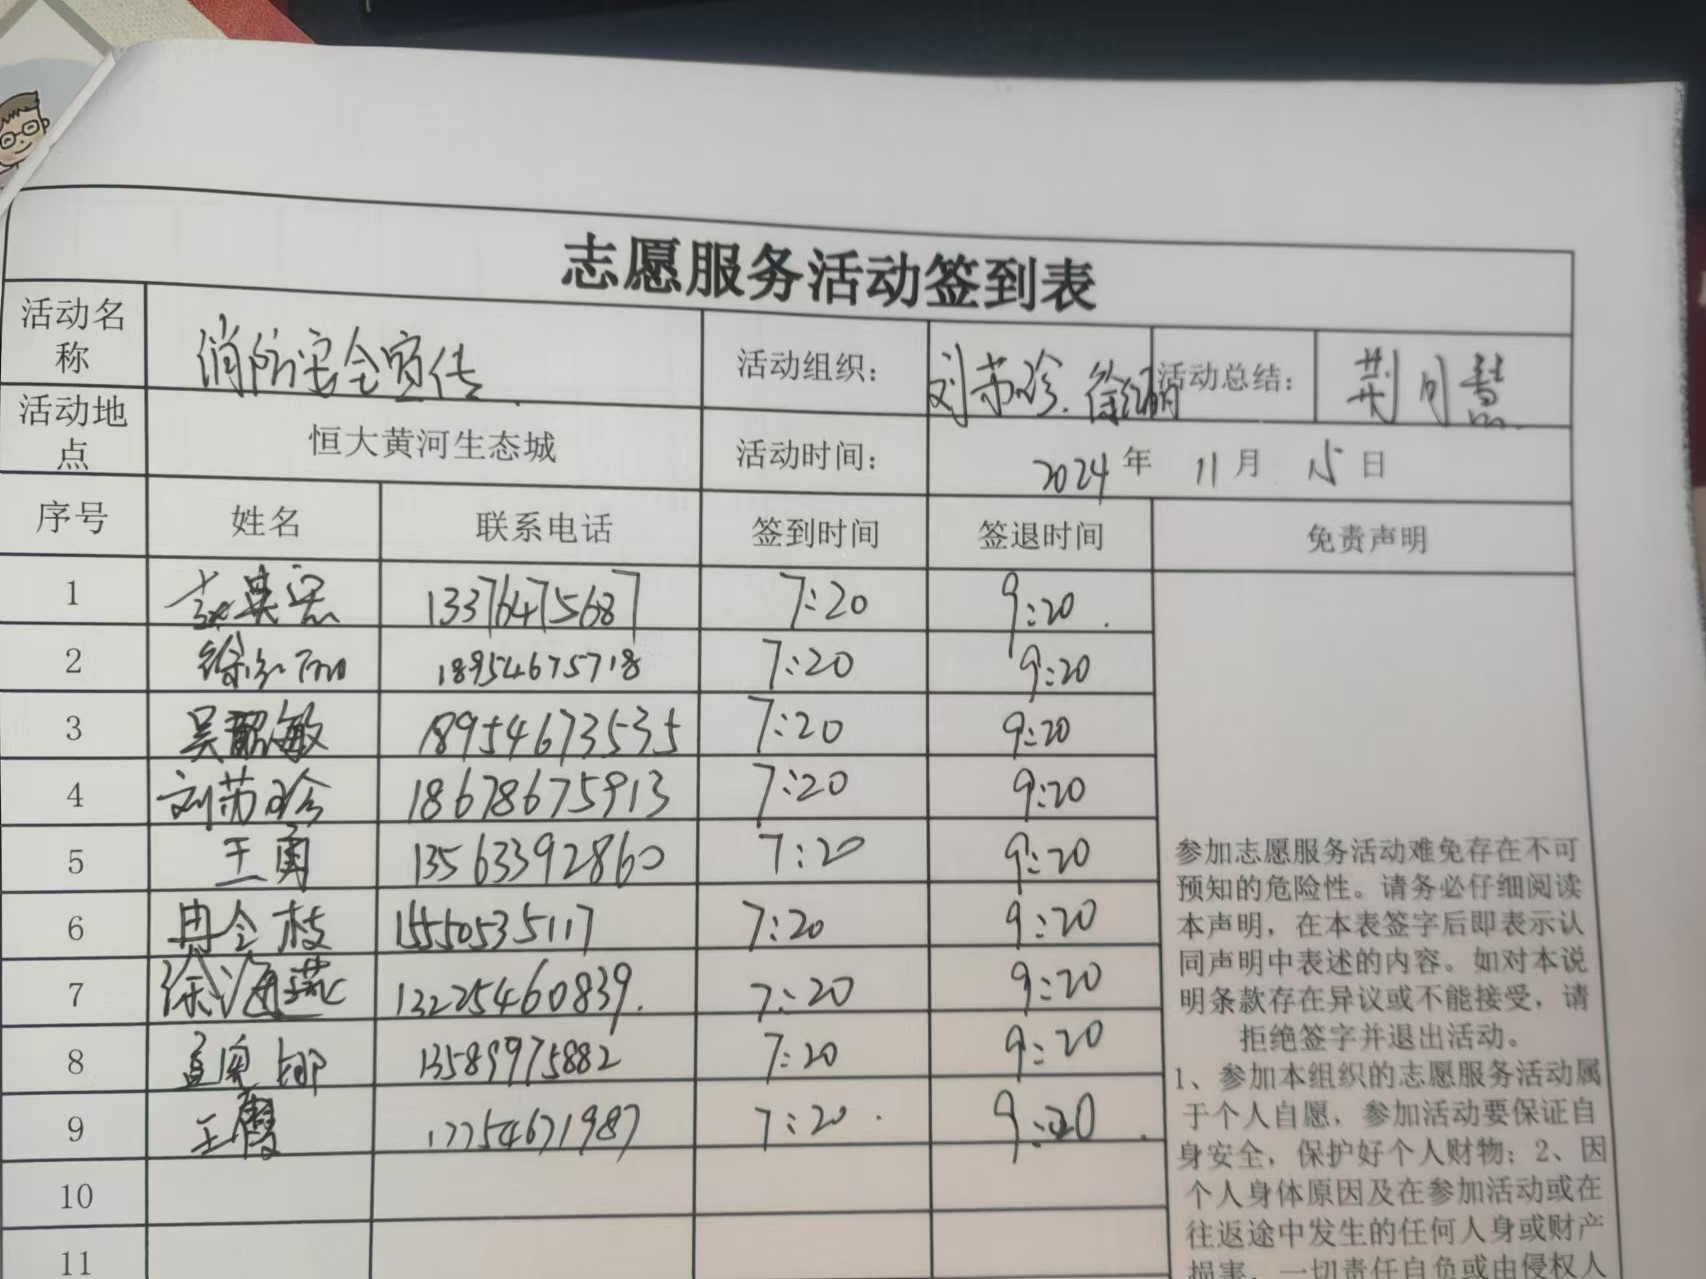 志愿服务活动签到表
活动名称 消防安全宣传 活动组织: 刘苏珍. 徐红丽 活动总结: 荆月慧
活动地点 恒大黄河生态城 活动时间: 2024年 11月 15日
序号 姓名 联系电话 签到时间 签退时间 免责声明
1 13376475687 7:20 9:20
2 徐红丽 18954675718 7:20 9:20
3 吴韶敏 18954673535 7:20 9:20
4 刘苏珍 18678675913 7:20 9:20
5 王勇 13563392860 7:20 9:20
6 冉令枝 15550535117 7:20 9:20
7 徐海燕 13225460839. 7:20 9:20
8 13589975882 7:20 9:20
9 王霞 17754671987 7:20 9:20
10
11
参加志愿服务活动难免存在不可
预知的危险性。请务必仔细阅读
本声明，在本表签字后即表示认
同声明中表述的内容。如对本说
明条款存在异议或不能接受，请
拒绝签字并退出活动。
1、参加本组织的志愿服务活动属
于个人自愿，参加活动要保证自
身安全，保护好个人财物；2、因
个人身体原因及在参加活动或在
往返途中发生的任何人身或财产
损害，一切责任自负或由侵权人